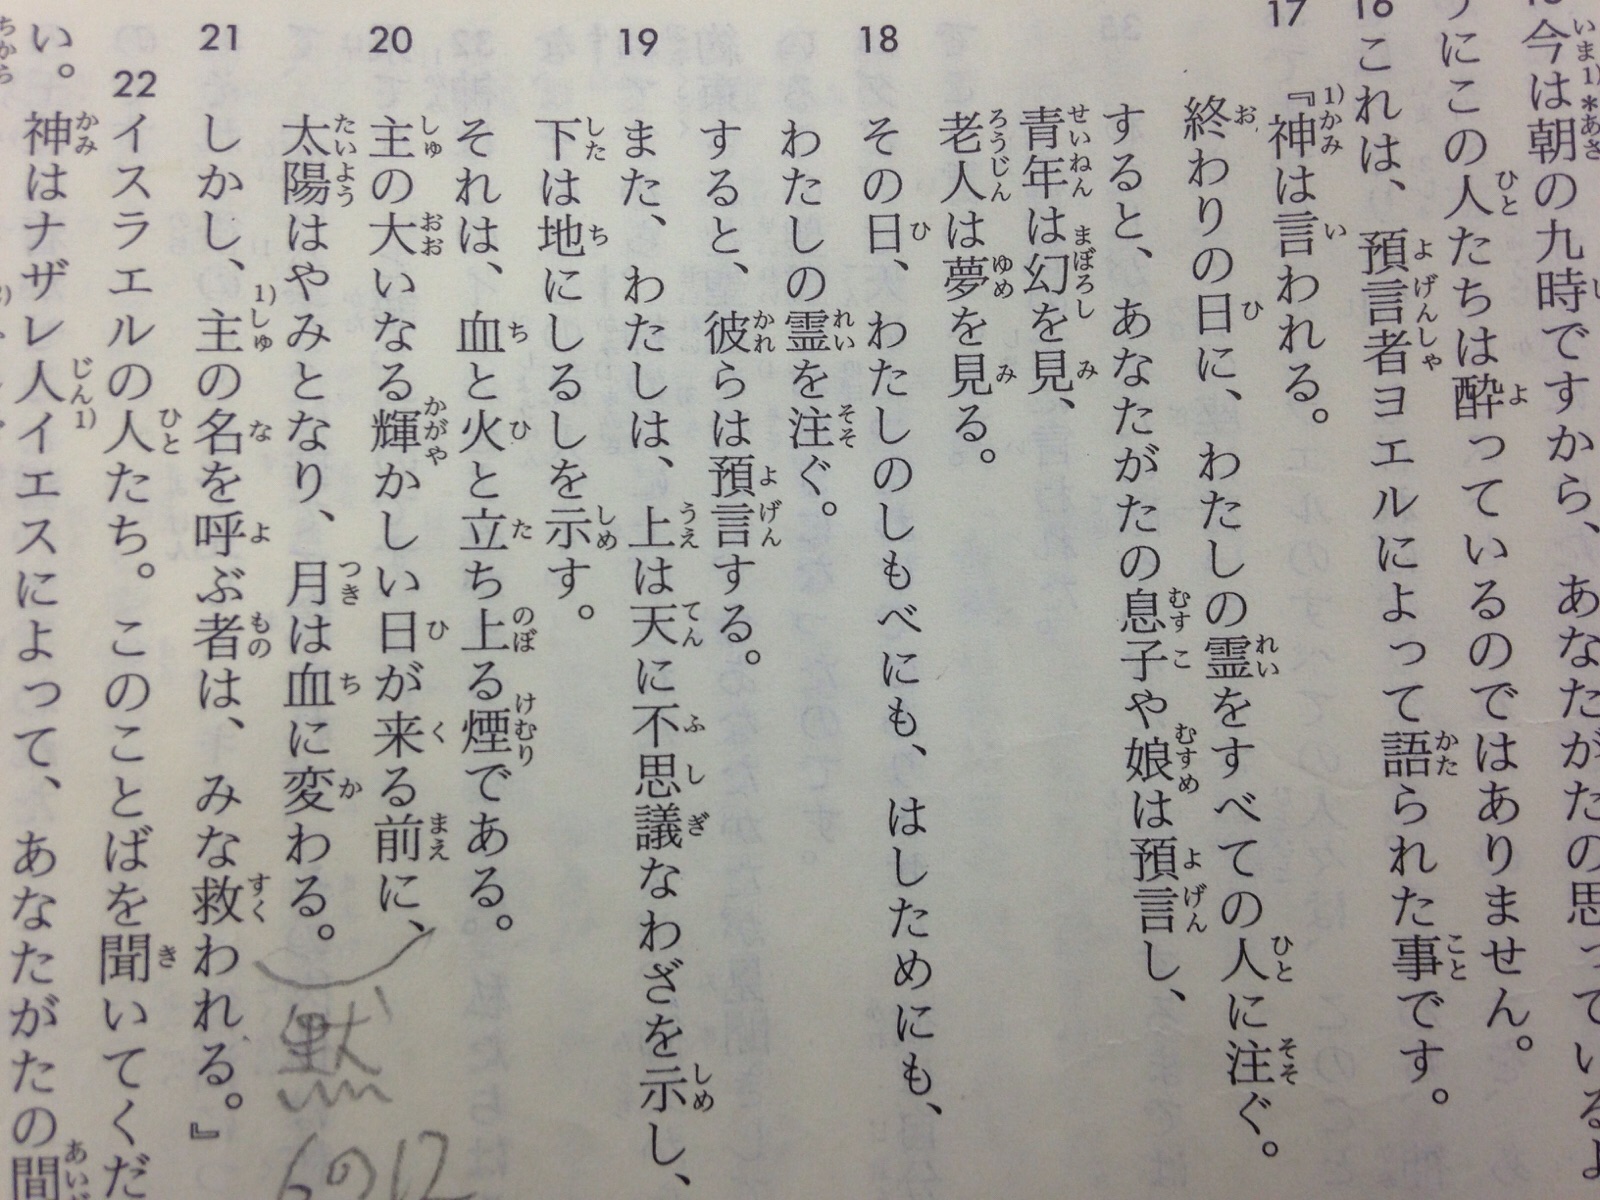 今は朝の九時ですから、あなたがたの思っているよ
うにこの人たちは酔っているのではありません。
16 これは、預言者ヨエルによって語られた事です。
17 『神は言われる。
終わりの日に、わたしの霊をすべての人に注ぐ。
すると、あなたがたの息子や娘は預言し、
青年は幻を見、
老人は夢を見る。
18 その日、わたしのしもべにも、はしためにも、
わたしの霊を注ぐ。
すると、彼らは預言する。
19 また、わたしは、上は天に不思議なわざを示し、
下は地にしるしを示す。
それは、血と火と立ち上る煙である。
20 主の大いなる輝かしい日が来る前に、
太陽はやみとなり、月は血に変わる。
黙
6の12
21 しかし、主の名を呼ぶ者は、みな救われる。』
22 イスラエルの人たち。このことばを聞いてくだ
い。神はナザレ人イエスによって、あなたがたの間